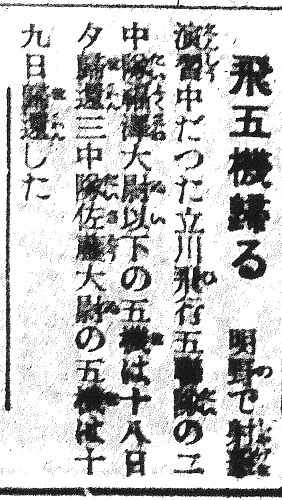 飛五機歸る 明野で射撃
演習中だつた立川飛行五聯隊の二
中隊福澤大尉以下の五機は十八日
夕歸還三中隊佐藤大尉の五機は十
九日歸還した